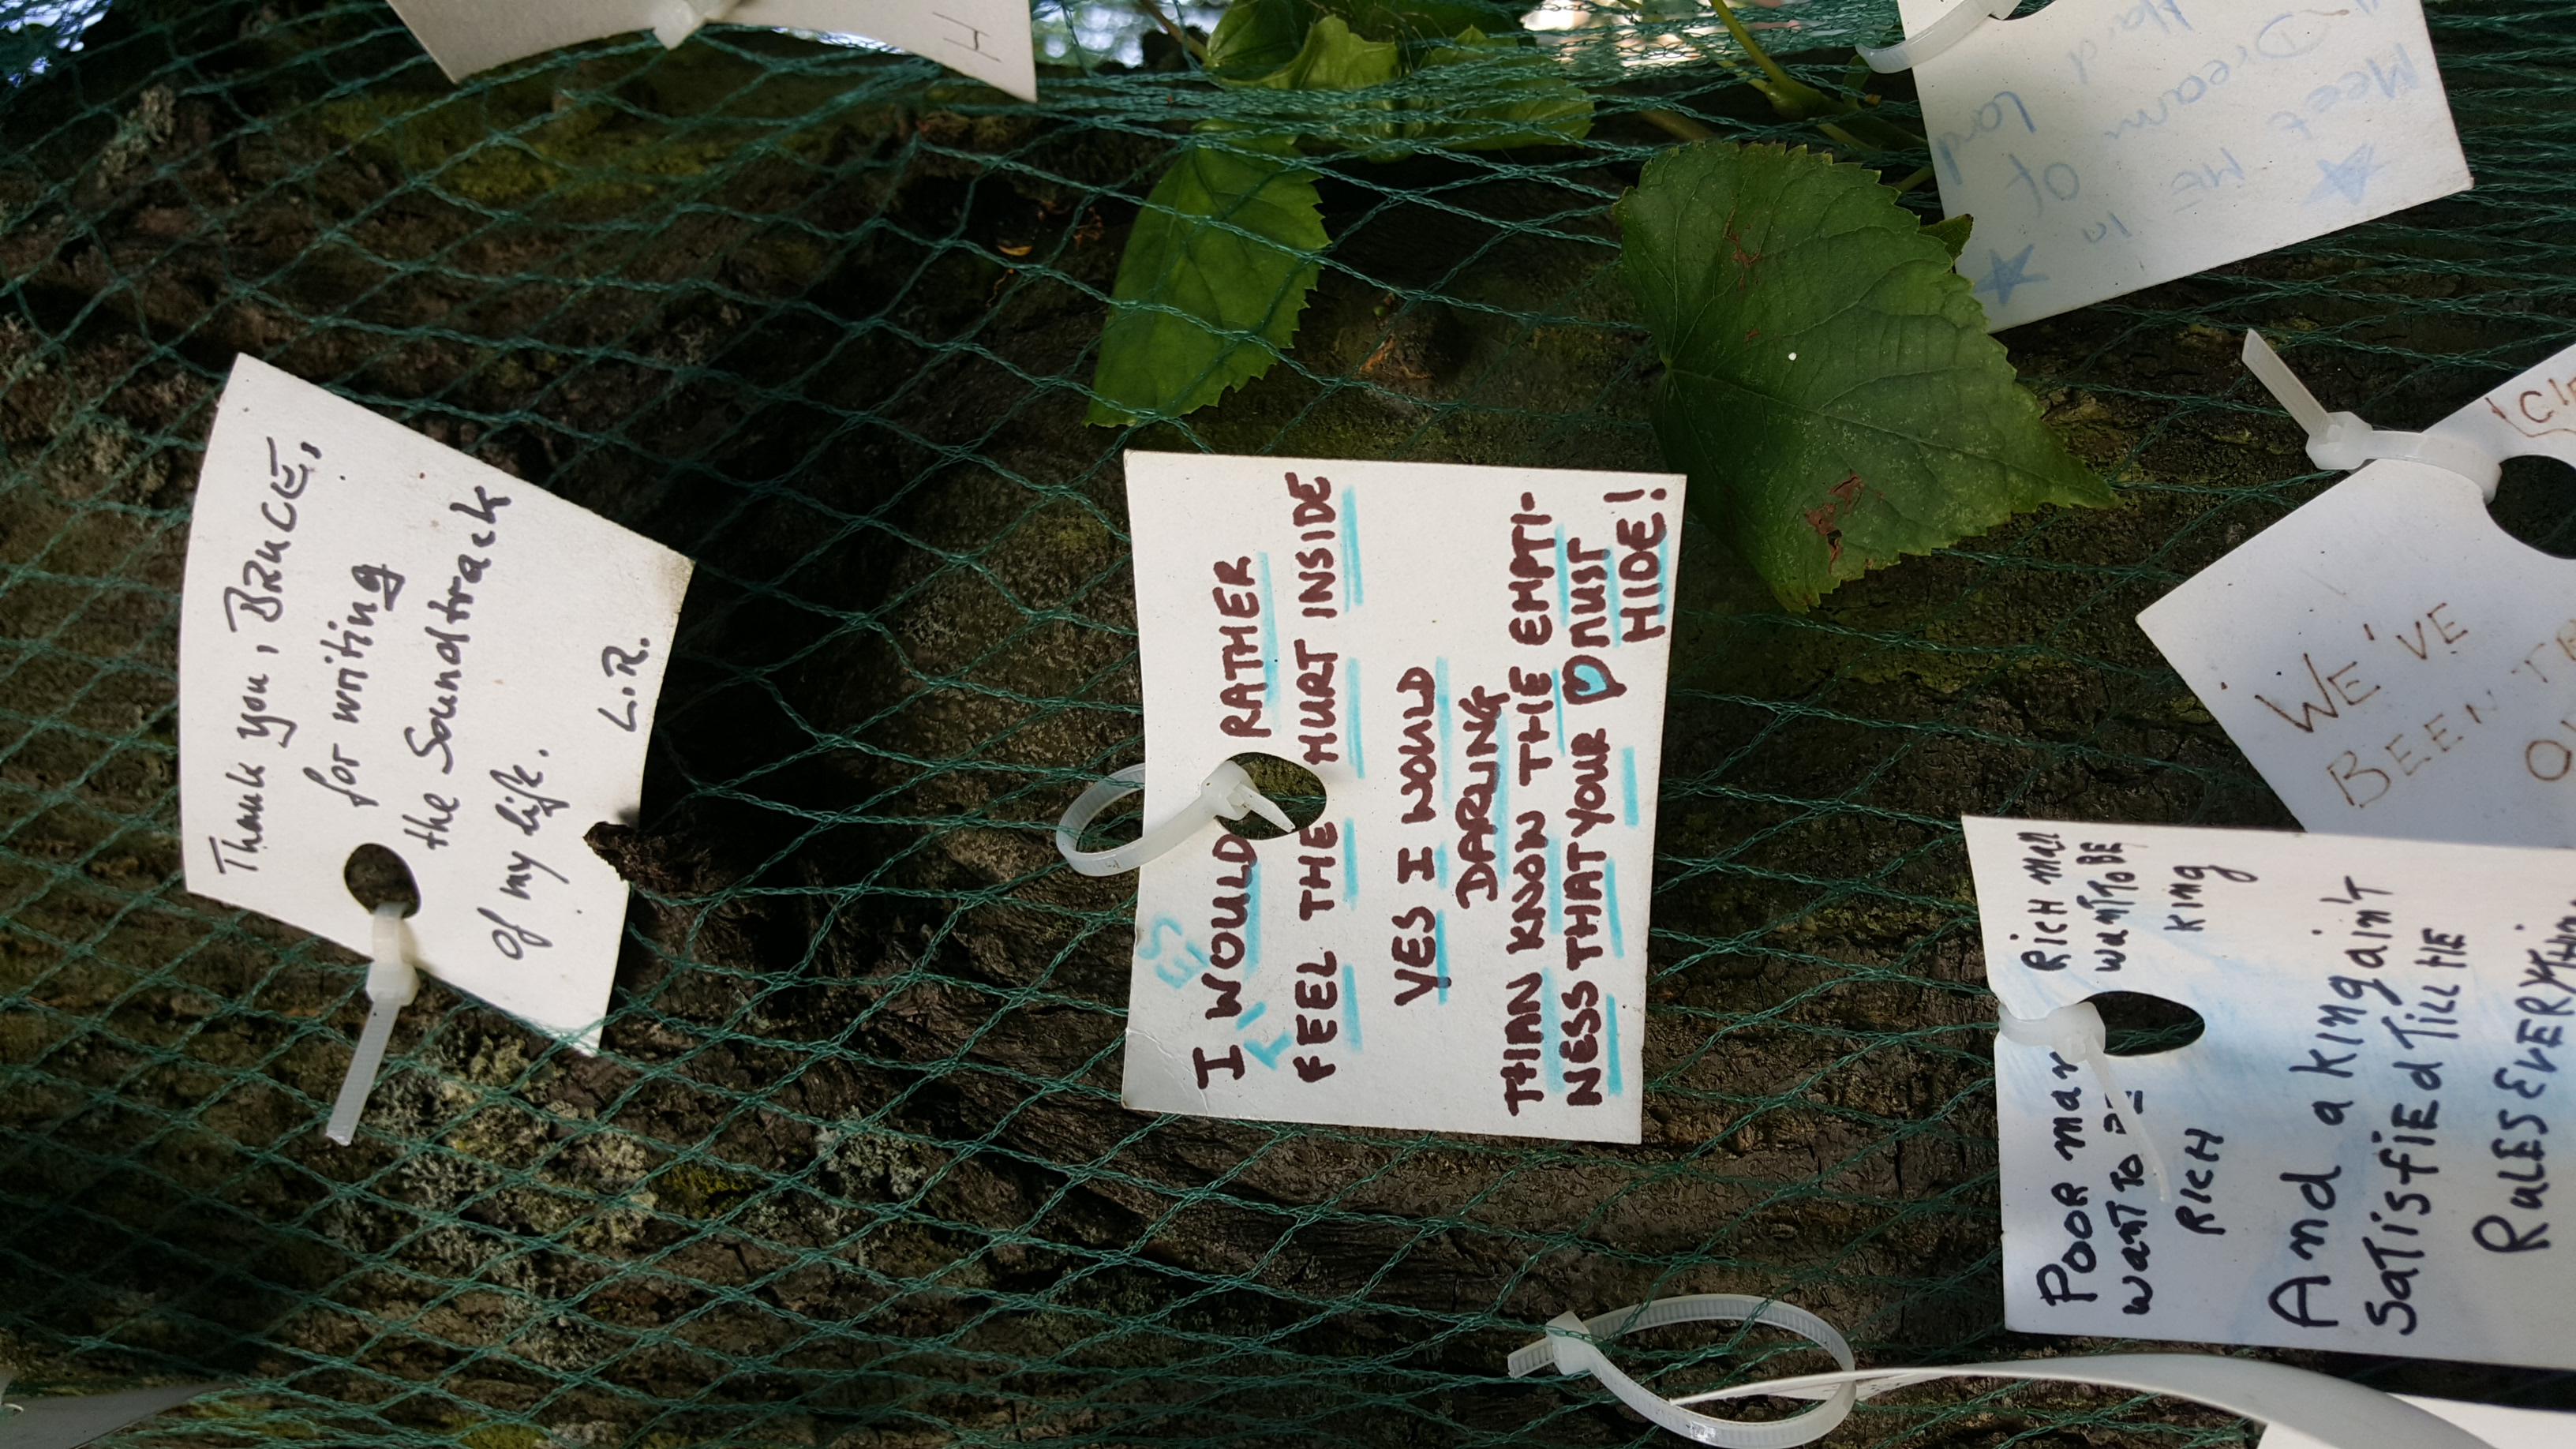 Thank you, BRUCE,
for writing
the Soundtrack
of my life.
L.R.
H
TIES
I WOULD RATHER
FEEL THE HURT INSIDE
YES I WOULD
DARLING
THAN KNOW THE EMPTI-
NESS THAT YOUR ♡ MUST
HIDE!
POOR man
want to BE
RICH
RICH man
want to BE
King
And a king ain't
Satisfied Till HE
RULES EVERYTHIN
WE'VE
BEEN
Meet ME in
Dream of